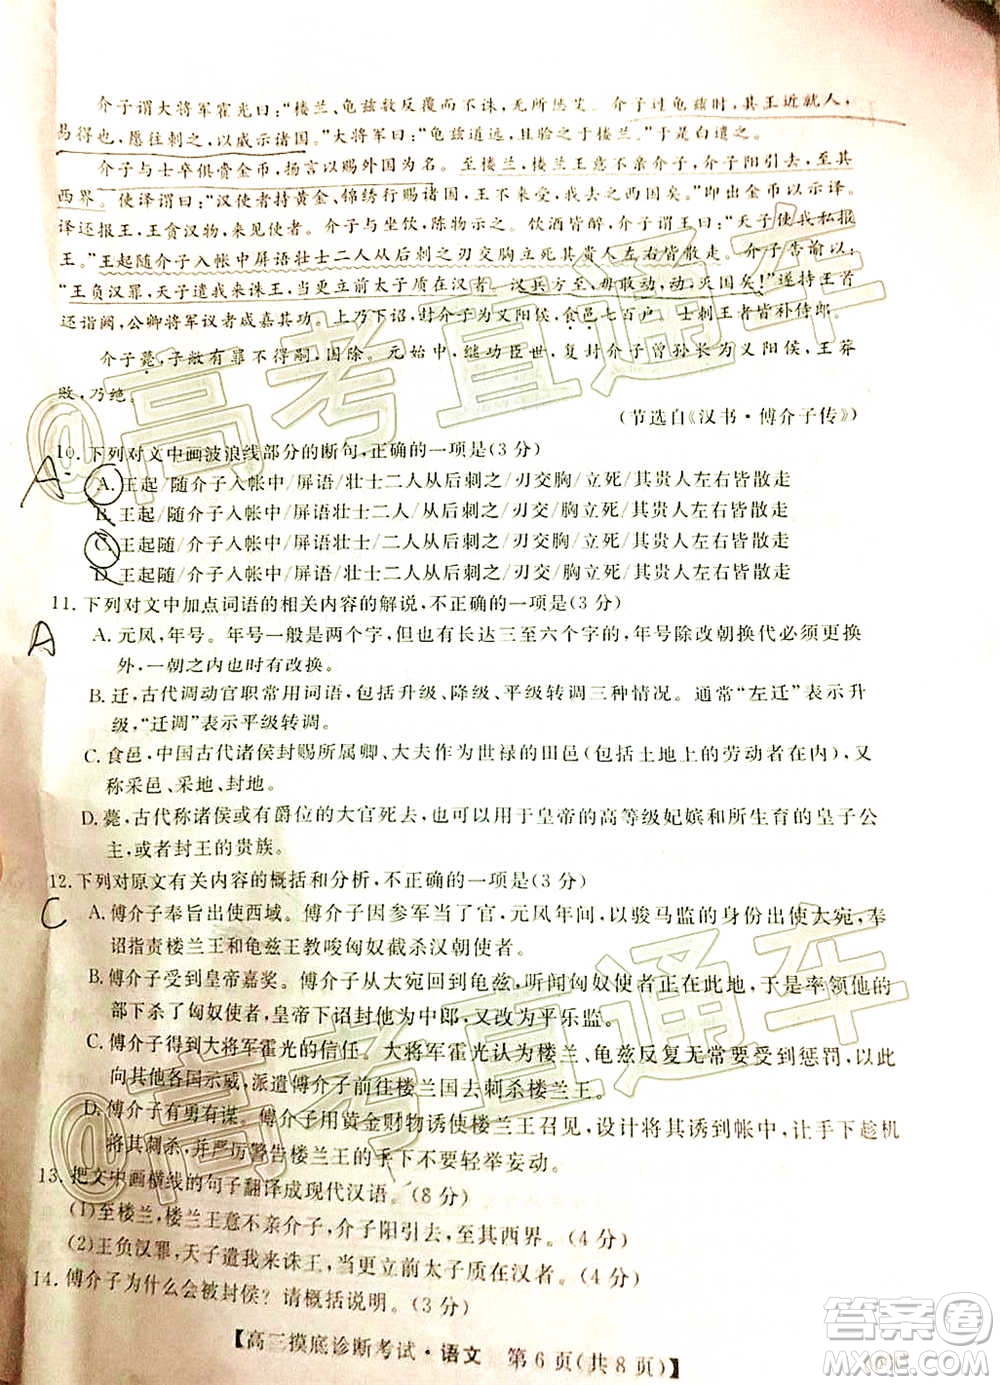 介子谓大将军霍光曰：“楼兰、龟兹数反覆而不诛，无所惩艾。介子过龟兹时，其王近就人，
易得也，愿往刺之，以威示诸国。”大将军曰：“龟兹道远，且验之于楼兰。”于是白遣之。
介子与士卒俱赍金币，扬言以赐外国为名。至楼兰，楼兰王意不亲介子，介子阳引去，至其
西界。使译谓曰：“汉使者持黄金、锦绣行赐诸国，王不来受，我去之西国矣。”即出金币以示译。
译还报王，王贪汉物，来见使者。介子与坐饮，陈物示之。饮酒皆醉，介子谓王曰：“天子使我私报
王。”王起随介子入帐中屏语壮士二人从后刺之刃交胸立死其贵人左右皆散走。介子告谕以：
“王负汉罪，天子遣我来诛王，当更立前太子质在汉者。汉兵方至，毋敢动，动，灭国矣！”遂持王首
还诣阙，公卿将军议者咸嘉其功。上乃下诏，封介子为义阳侯，食邑七百户，士刺王者皆补侍郎。
介子薨，子敞有罪不得嗣，国除。元始中，继功臣世，复封介子曾孙长为义阳侯，王莽
败，乃绝。
（节选自《汉书·傅介子传》）
10. 下列对文中画波浪线部分的断句，正确的一项是（3 分）
A
A. 王起/随介子入帐中/屏语/壮士二人从后刺之/刃交胸/立死/其贵人左右皆散走
B. 王起/随介子入帐中/屏语壮士二人从后刺之/刃交/胸立死/其贵人左右皆散走
C. 王起随/介子入帐中/屏语/壮士二人从后刺之/刃交胸/立死/其贵人左右皆散走
D. 王起随/介子入帐中/屏语壮士二人从后刺之/刃交/胸立死/其贵人左右皆散走
11. 下列对文中加点词语的相关内容的解说，不正确的一项是（3 分）
A
A. 元风，年号。年号一般是两个字，但也有长达三至六个字的，年号除改朝换代必须更换
外，一朝之内也时有改换。
B. 迁，古代调动官职常用词语，包括升级、降级、平级转调三种情况。通常“左迁”表示升
级，“迁调”表示平级转调。
C. 食邑，中国古代诸侯封赐所属卿、大夫作为世禄的田邑（包括土地上的劳动者在内），又
称采邑、采地、封地。
D. 薨，古代称诸侯或有爵位的大官死去，也可以用于皇帝的高等级妃嫔和所生育的皇子公
主，或者封王的贵族。
12. 下列对原文有关内容的概括和分析，不正确的一项是（3 分）
C
A. 傅介子奉旨出使西域。傅介子因参军当了官，元风年间，以骏马监的身份出使大宛，奉
诏指责楼兰王和龟兹王教唆匈奴截杀汉朝使者。
B. 傅介子受到皇帝嘉奖。傅介子从大宛回到龟兹，听闻匈奴使者从乌孙回来，率领他的
部下杀了匈奴使者，皇帝下诏封他为中郎，又升为平乐监。
C. 傅介子得到大将军霍光的信任。大将军霍光认为楼兰、龟兹反复无常要受到惩罚，以此
向其他各国示威，派遣傅介子前往楼兰国去刺杀楼兰王。
D. 傅介子有勇有谋。傅介子用黄金财物诱使楼兰王召见，设计将其诱到帐中，让手下趁机
将其刺杀，并严厉警告楼兰王的手下不要轻举妄动。
13. 把文中画横线的句子翻译成现代汉语。（8 分）
(1)至楼兰，楼兰王意不亲介子，介子阳引去，至其西界。（4 分）
(2)王负汉罪，天子遣我来诛王，当更立前太子质在汉者。（4 分）
14. 傅介子为什么会被封侯？请概括说明。（3 分）
【高三摸底诊断考试·语文 第 6 页（共 8 页）】
@高考直通车
@高考直通车
答案圈
MXQE.COM